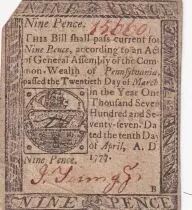 Nine Pence.
THIS Bill shall pass current for
Nine Pence, according to an Act
of General Assembly of the Com-
mon-Wealth of Pennsylvania,
passed the Twentieth Day of March
in the Year One
Thousand Seven
Hundred and Se-
venty-seven. Da-
ted the tenth Day
of April, A. D.
1777.
Nine Pence.
B
NINE PENCE